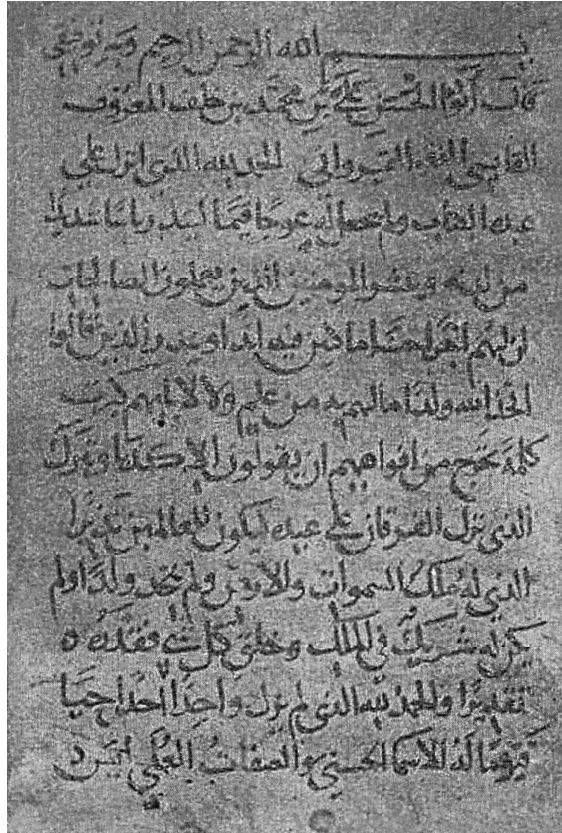 بسم الله الرحمن الرحيم وبه توفيقي
قال أبو الحسن علي بن محمد بن خلف المعروف
القابسي الفقيه القيرواني الحمد لله الذي انزل على
عبده الكتاب ولم يجعل له عوجا قيما لينذر باسا شديدا
من لدنه ويبشر المومنين الذين يعملون الصالحات
ان لهم اجرا حسنا ماكثين فيه ابدا وينذر الذين قالوا
اتخذ الله ولدا ما لهم به من علم ولا لابايهم كبرت
كلمة تخرج من افواههم ان يقولون الا كذبا وتبارك
الذي نزل الفرقان على عبده ليكون للعالمين نذيرا
الذي له ملك السموات والارض ولم يتخذ ولدا ولم
يكن له شريك في الملك وخلق كل شي فقدره
تقديرا والحمد لله الذي لم يزل واحدا احدا حيا
قيوما له الاسما الحسنى والصفات العلى ليس